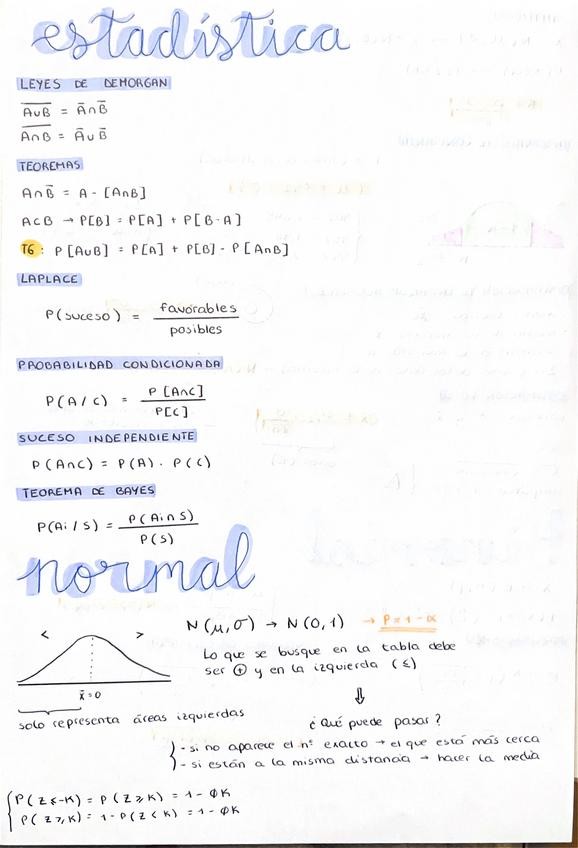 estadística
LEYES DE DEMORGAN
\overline{A∪B} = Ā∩B̄
\overline{A∩B} = Ā∪B̄
TEOREMAS
A∩B̄ = A - [A∩B]
A⊂B → P[B] = P[A] + P[B-A]
T6: P[A∪B] = P[A] + P[B] - P[A∩B]
LAPLACE
P(suceso) = favorables / posibles
PROBABILIDAD CONDICIONADA
P(A/C) = P[A∩C] / P[C]
SUCESO INDEPENDIENTE
P(A∩C) = P(A) · P(C)
TEOREMA DE BAYES
P(Ai/S) = P(Ai∩S) / P(S)
normal
N(μ,σ) → N(0,1) → P = 1-α
< >
Lo que se busque en la tabla debe
ser ⊕ y en la izquierda (≤)
x̄ = 0
⇓
solo representa áreas izquierdas
¿Qué puede pasar?
- si no aparece el nº exacto → el que está más cerca
- si están a la misma distancia → hacer la media
P(Z≤-K) = P(Z≥K) = 1-ΦK
P(Z≥K) = 1-P(Z<K) = 1-ΦK